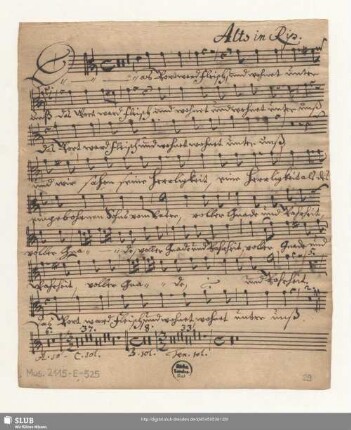 Alto in Rip.
Das Wort ward Fleisch und wohnet unter
unß das Wort ward Fleisch und wohnet und wohnet unter unß
das Wort ward Fleisch und wohnet wohnet unter unß
und wir sahen seine Herrligkeit eine Herrligkeit als des
eingebohrnen Sohns vom Vater, voller Gnade und Warheit,
voller Gna - - de, voller Gnade und Warheit voller Gnade und
Warheit, voller Gna - - de, und Warheit.
Wort ward Fleisch und wohnet wohnet unter unß.
37. 18. 33.
A. sol. C. sol. B. sol. Ten. sol.
Mus. 2415-E-525
SLUB
Wir führen Wissen.